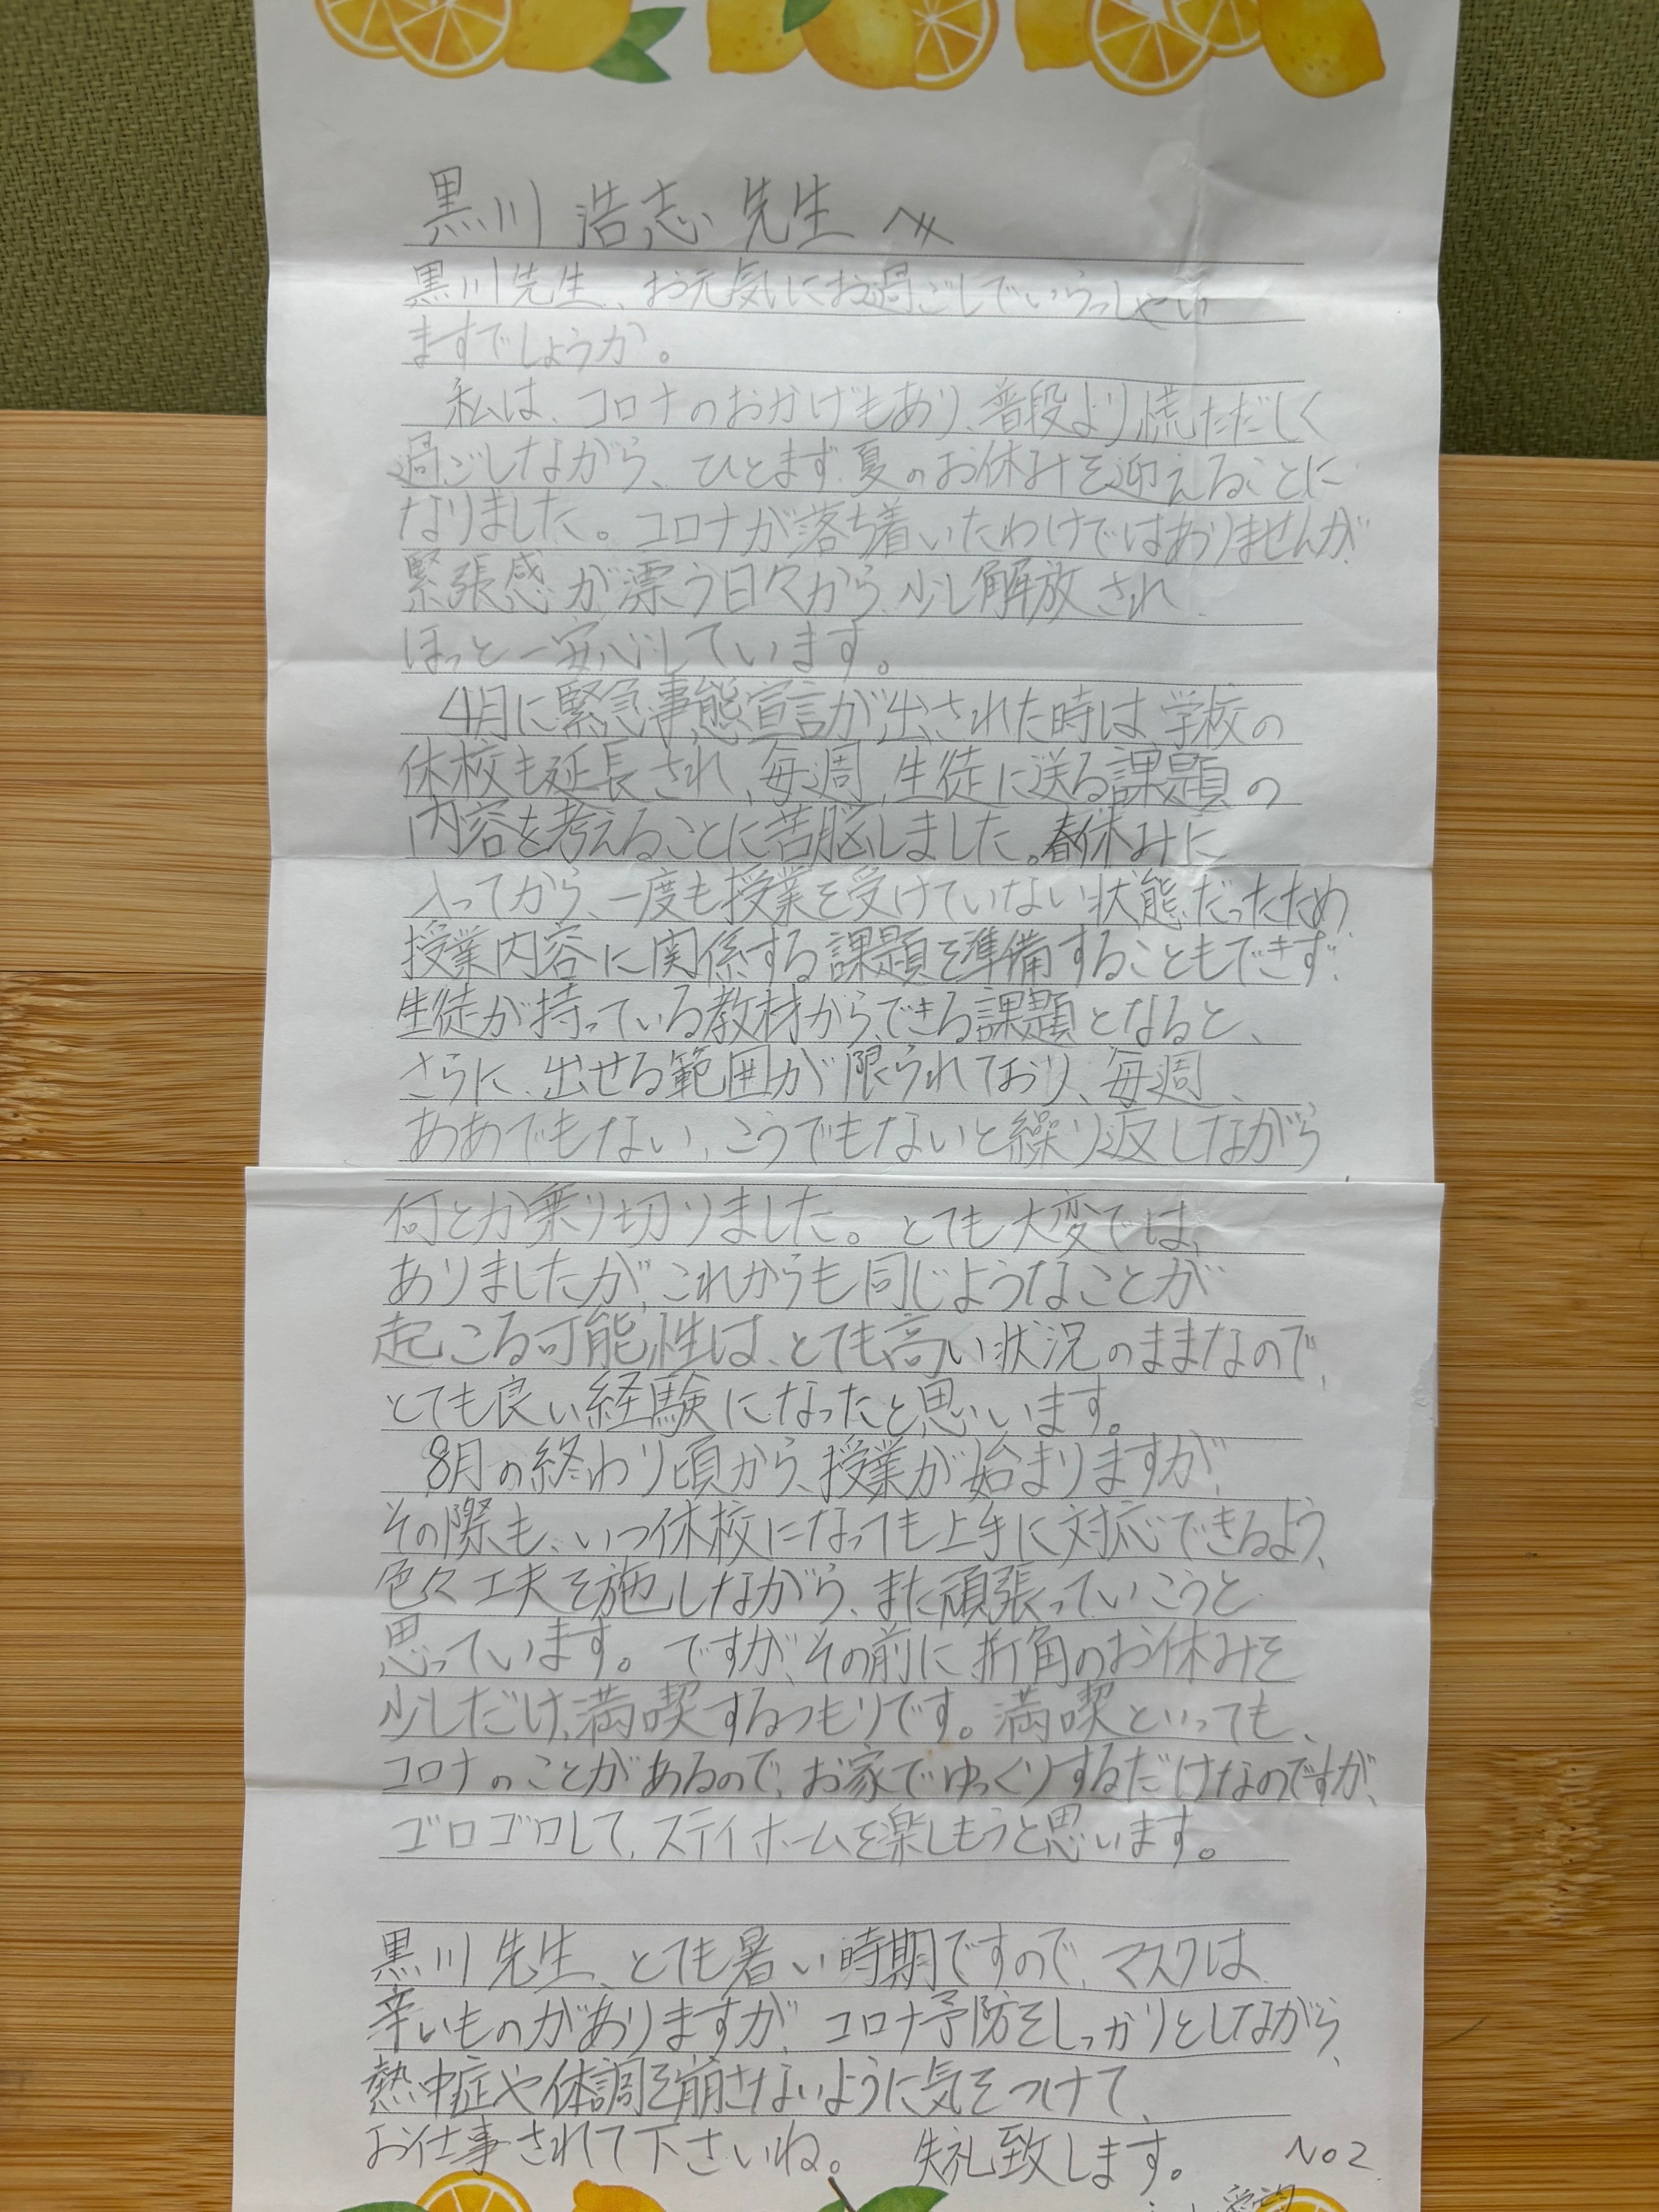 黒川 浩志 先生 へ
黒川先生、お元気にお過ごしでいらっしゃい
ますでしょうか。
私は、コロナのおかげもあり、普段より慌ただしく
過ごしながら、ひとまず、夏のお休みを迎えることに
なりました。コロナが落ち着いたわけではありませんが、
緊張感が漂う日々から、少し解放され、
ほっと一安心しています。
4月に緊急事態宣言が出された時は、学校の
休校も延長され、毎週、生徒に送る課題の
内容を考えることに苦脳しました。春休みに
入ってから、一度も授業を受けていない状態だったため、
授業内容に関係する課題を準備することもできず、
生徒が持っている教材から、できる課題となると、
さらに、出せる範囲が限られており、毎週、
ああでもない、こうでもないと繰り返しながら
何とか乗り切りました。とても大変では、
ありましたが、これからも同じようなことが
起こる可能性は、とても高い状況のままなので、
とても良い経験になったと思います。
8月の終わり頃から、授業が始まりますが、
その際も、いつ休校になっても上手に対応できるよう、
色々工夫を施しながら、また頑張っていこうと
思っています。ですが、その前に折角のお休みを
少しだけ、満喫するつもりです。満喫といっても、
コロナのことがあるので、お家でゆっくりするだけなのですが、
ゴロゴロして、ステイホームを楽しもうと思います。
黒川先生、とても暑い時期ですので、マスクは
辛いものがありますが、コロナ予防をしっかりとしながら、
熱中症や体調を崩さないように気をつけて、
お仕事されて下さいね。 失礼致します。 No2